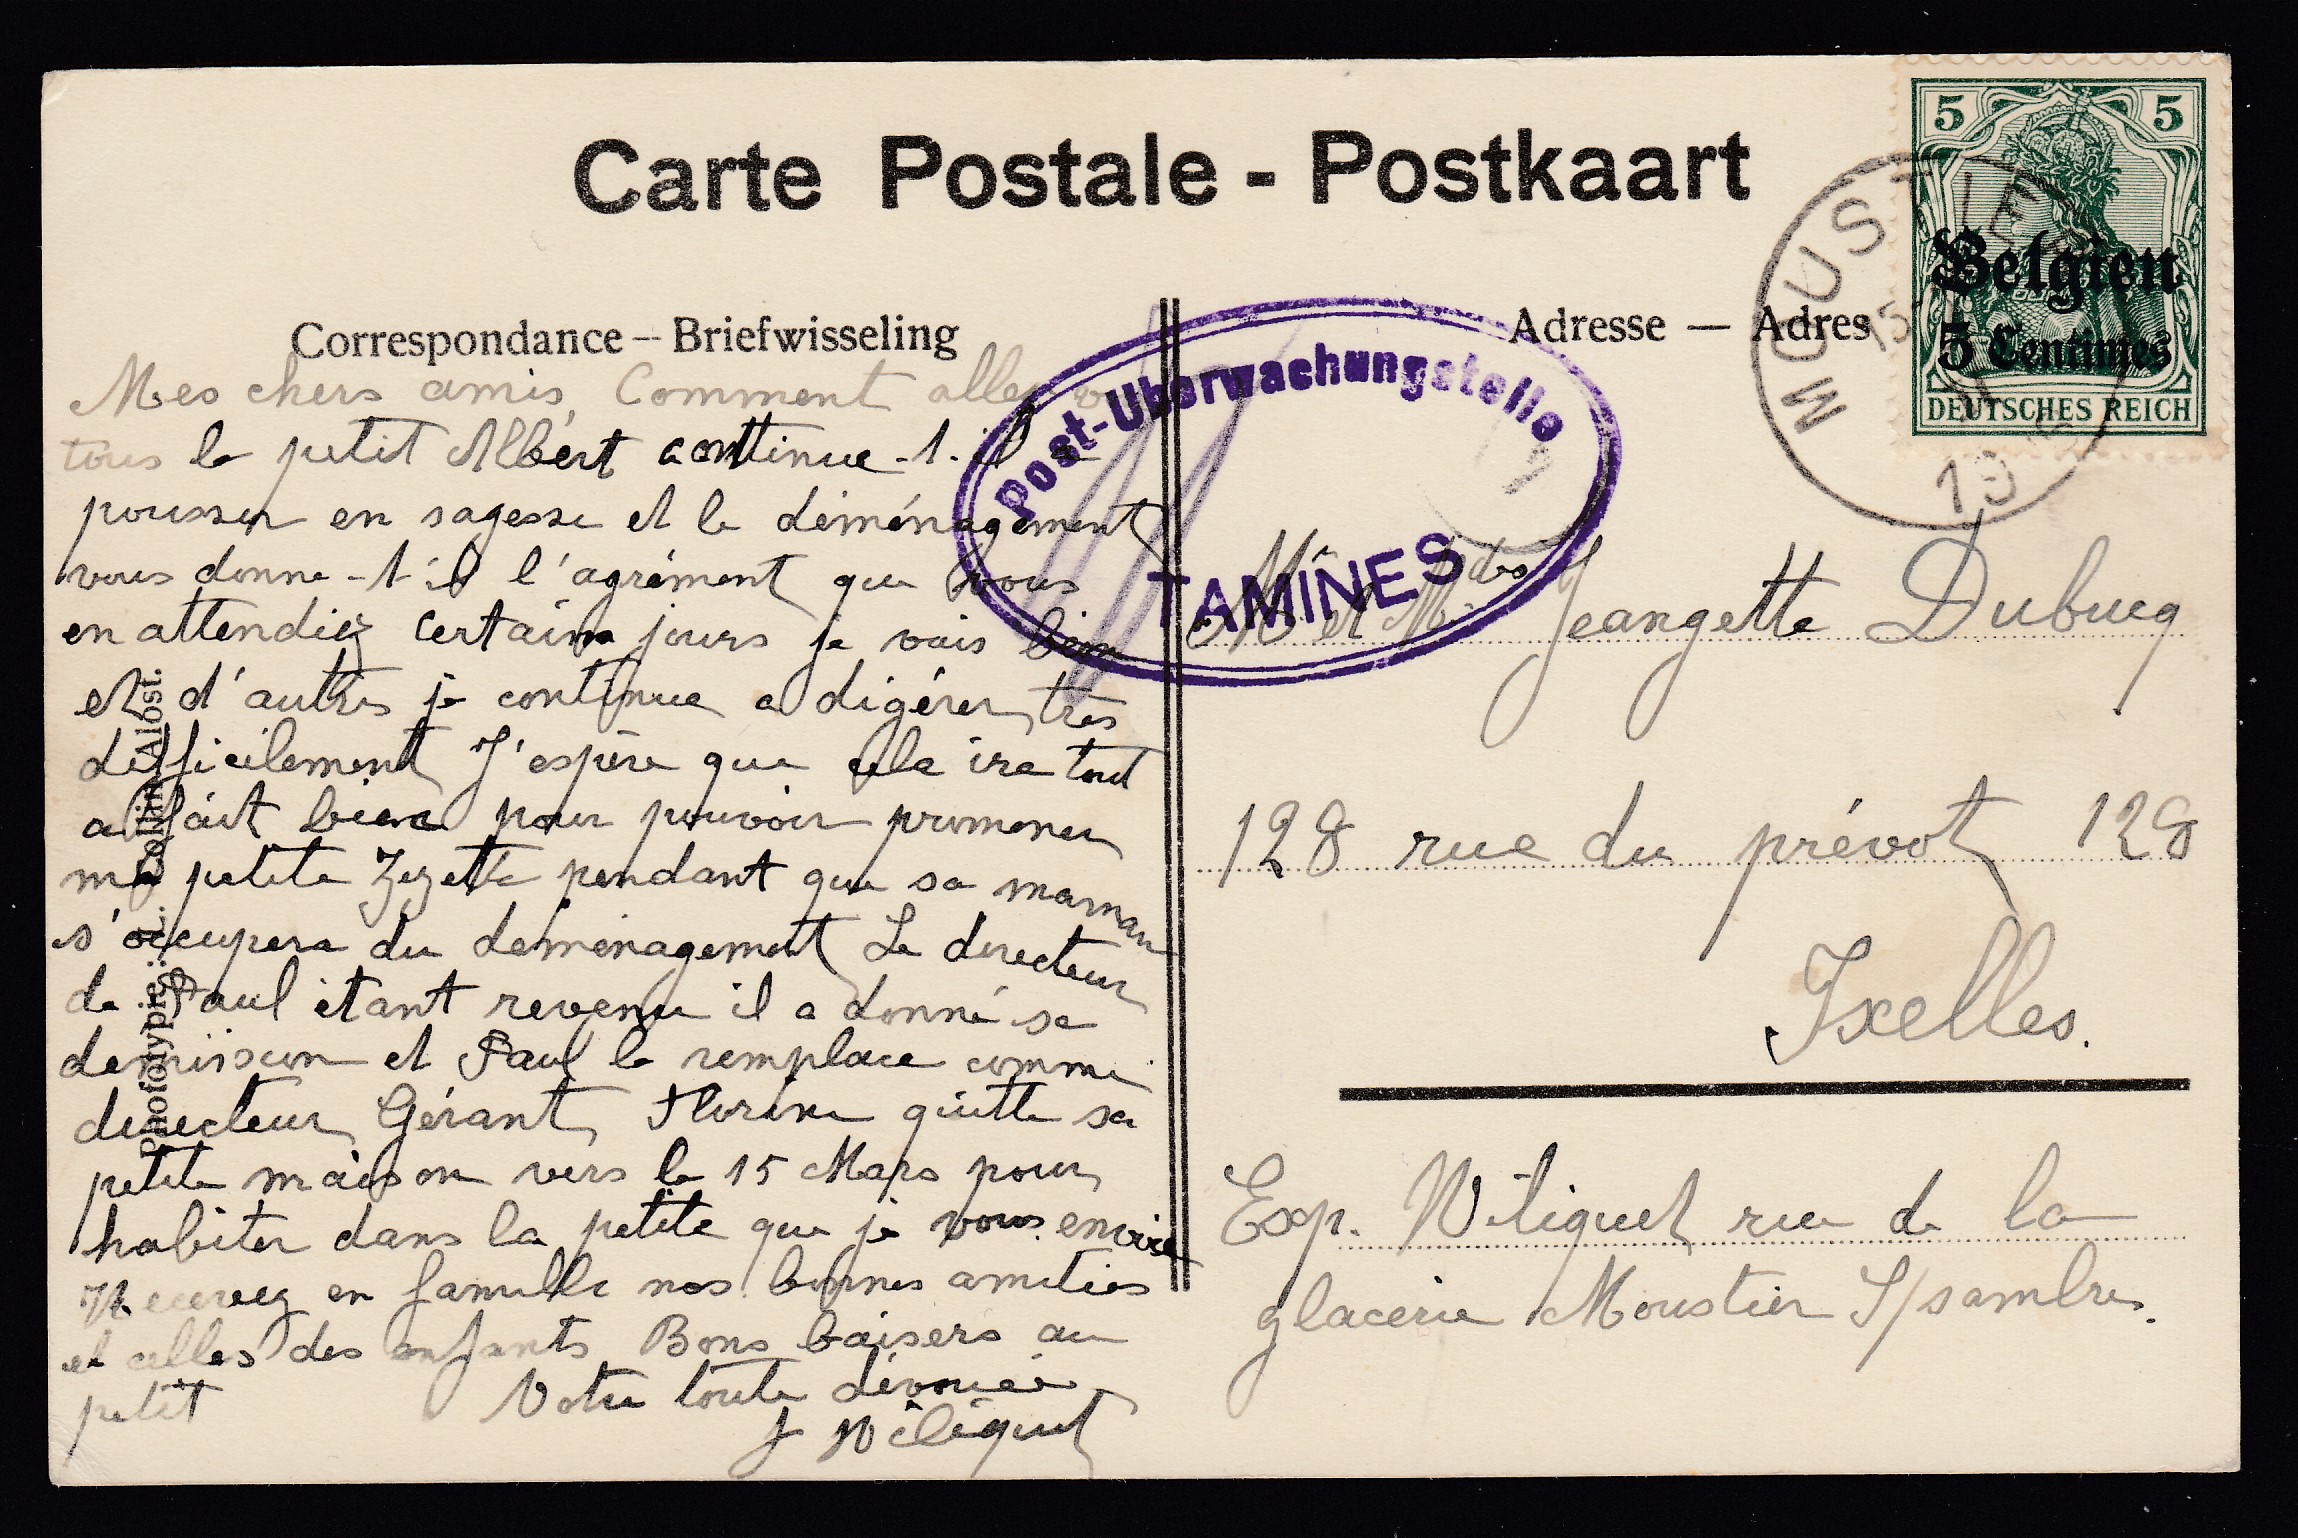 Carte Postale - Postkaart
Correspondance – Briefwisseling
Adresse — Adres
5 5
Belgien
5 Centimes
DEUTSCHES REICH
MOUSTIER
Post-Uberwachungstelle
TAMINES
Mes chers amis, Comment allez
tous le petit Albert continue-t-il a
pousser en sagesse et le déménagement
vous donne-t-il l'agrément que vous
en attendiez certains jours je vais bien
et d'autres je continue a digérer très
difficilement J'espère que cela ira tout
a fait bien pour pouvoir promener
ma petite Zezette pendant que sa maman
s'occupera du déménagement Le directeur
de Paul étant revenu il a donné sa
demission et Paul le remplace comme
directeur Gérant, Florine quitte sa
petite maison vers le 15 Mars pour
habiter dans la petite que je vous envoie
Recevez en famille nos bonnes amitiés
et celles des enfants Bons baisers au
petit Votre toute dévouée
J Wiliquet
Phototypie: L. Collin Alost.
Mr et Mme Jeangette Dubucq
128 rue du prévot 128
Ixelles.
Exp. Wiliquet rue de la
glacerie Moustier S/sambre.